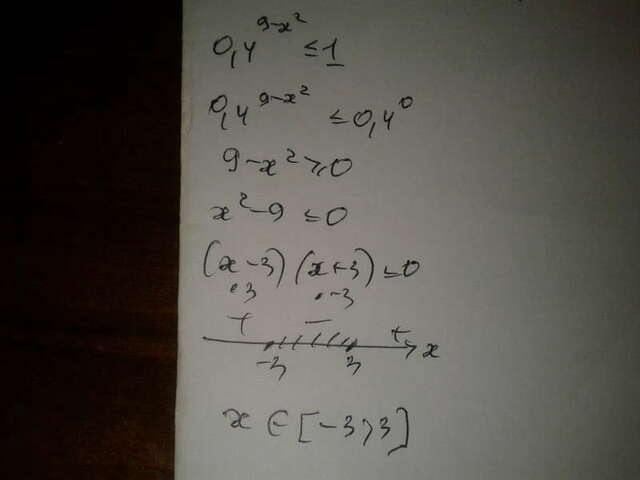 0,4^(9-x²) ≤ 1
0,4^(9-x²) ≤ 0,4⁰
9-x² ≥ 0
x²-9 ≤ 0
(x-3)(x+3) ≤ 0
3 -3
+ - +
-3 3 x
x ∈ [-3;3]